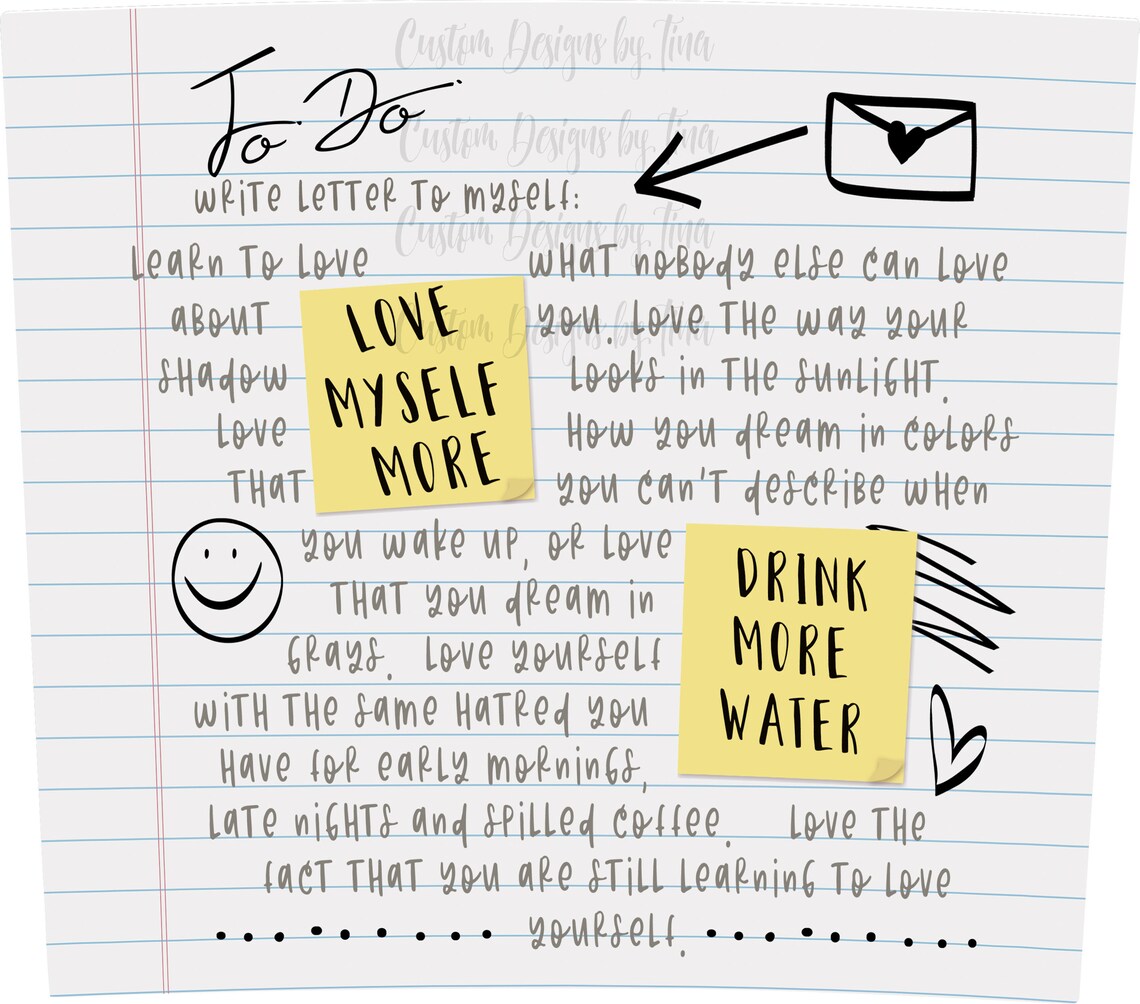 Custom Designs by Tina
To Do
Custom Designs by Tina
write letter to myself:
Custom Designs by Tina
Learn to love what nobody else can love
about you. Love the way your
Custom Designs by Tina
shadow looks in the sunlight.
Love how you dream in colors
that you can't describe when
LOVE
MYSELF
MORE
you wake up, or love
that you dream in
grays. Love yourself
with the same hatred you
have for early mornings,
DRINK
MORE
WATER
late nights and spilled coffee. Love the
fact that you are still learning to love
yourself.